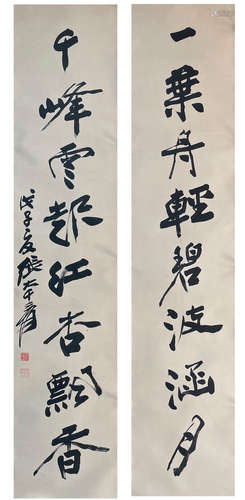 一葉舟輕碧波涵月
千峰雲起紅杏飄香
戊子夏張大千爰